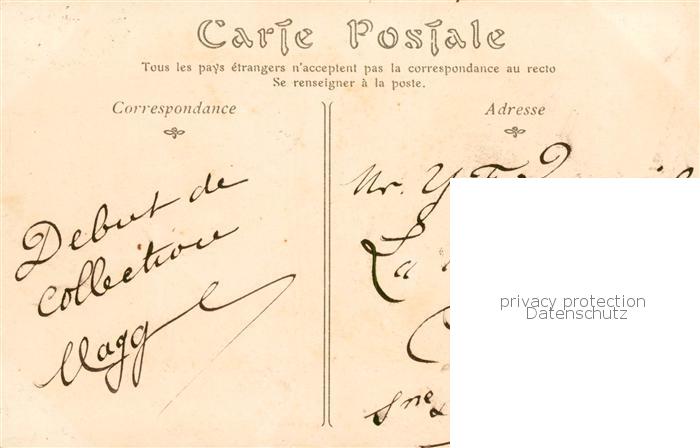 Carte Postale
Tous les pays étrangers n'acceptent pas la correspondance au recto
Se renseigner à la poste.
Correspondance
Adresse
Debut de
collection
Magg
Mr. Y
La
sne
privacy protection
Datenschutz